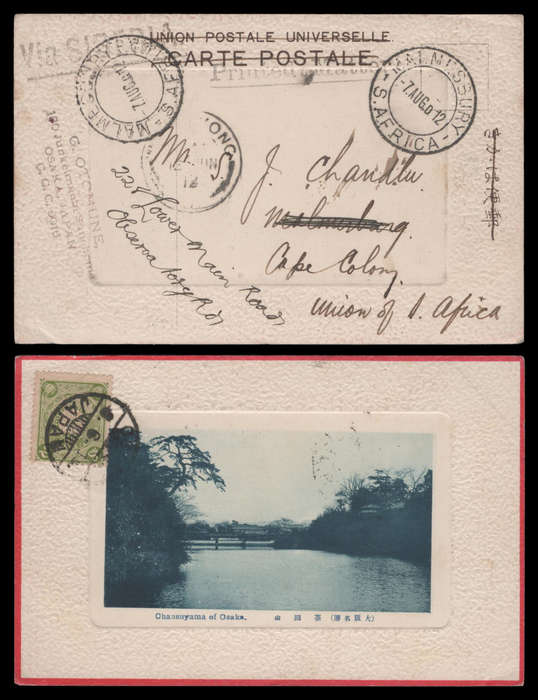 UNION POSTALE UNIVERSELLE.
CARTE POSTALE
Via
Printed Matter
MALMESBURY
7 AUG 12
S. AFRICA
MALMESBURY
7 AUG 12
S. AFRICA
HONG KONG
12
G. OTCMUNE.
OSAKA, JAPAN
Mr. J. Chandler
Malmesbury.
Cape Colony.
Union of S. Africa
228 Lower Main Road
Observatory Rd
JAPAN
Chausuyama of Osaka.
(大阪名勝) 茶臼山